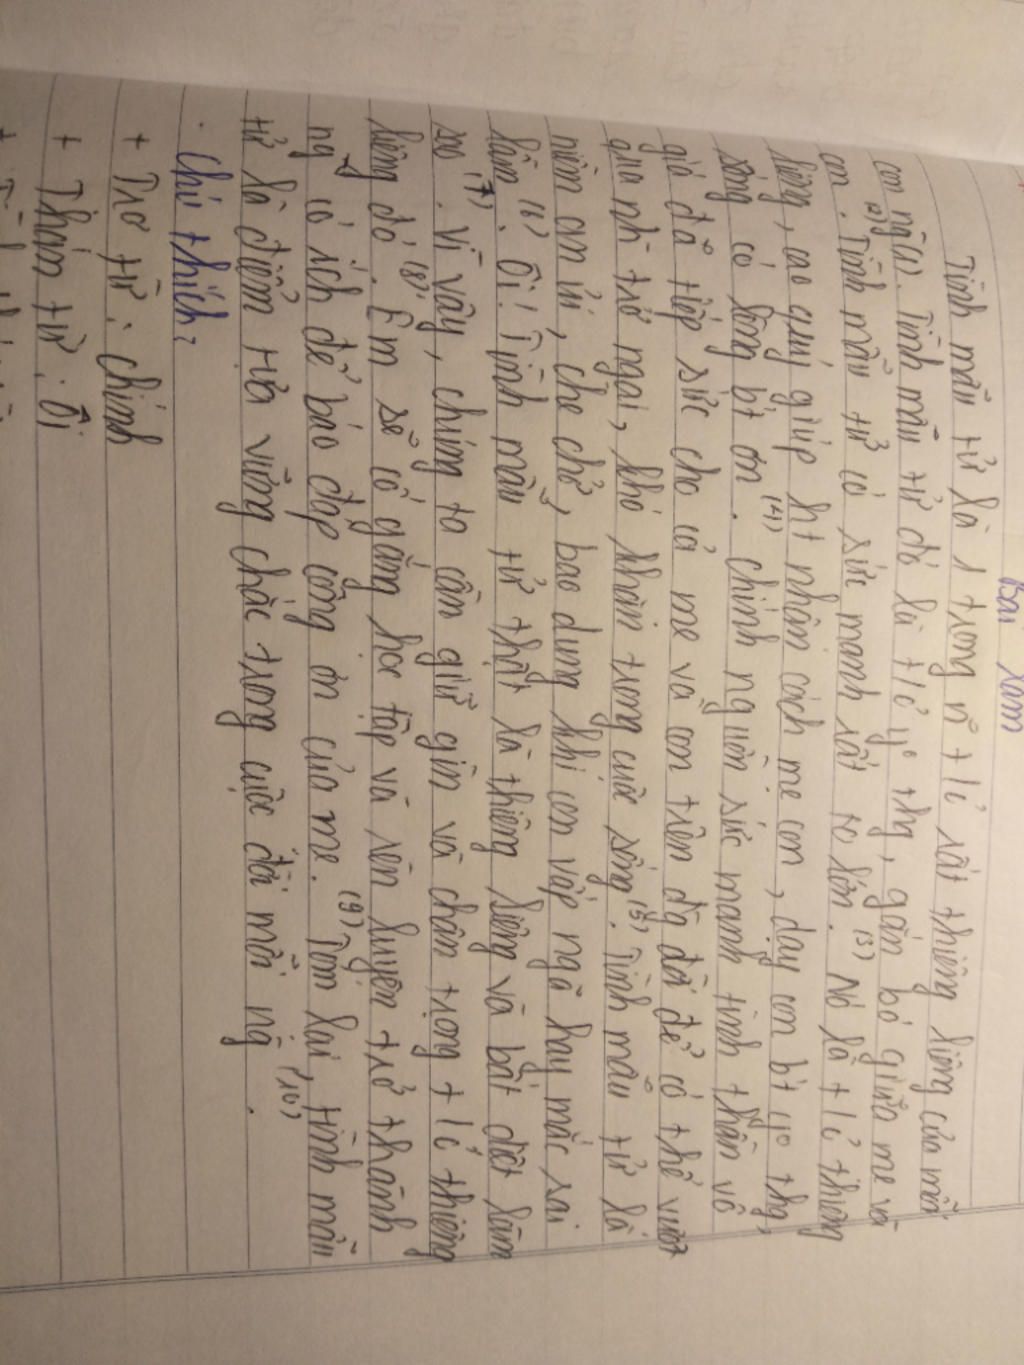 Bài làm
Tình mẫu tử là 1 trong n° t/c' rất thiêng liêng của mỗi
con ng (1). Tình mẫu tử đó là t/c' y° thg, gắn bó giữa mẹ và
con. (2) Tình mẫu tử có sức mạnh rất to lớn. (3) Nó là t/c' thiêng
liêng, cao quý giúp ht nhân cách mẹ con, dạy con bt y° thg,
sống có lòng bt ơn. (4) chính nguồn sức mạnh tinh thần vô
giá đã tiếp sức cho cả mẹ và con trên đg đời để có thể vượt
qua nh trở ngại, khó khăn trong cuộc sống (5). Tình mẫu tử là
niềm an ủi, che chở, bao dung khi con vấp ngã hay mắc sai
lầm. (6) Ôi! Tình mẫu tử thật là thiêng liêng và bất diệt làm
sao. (7) Vì vậy, chúng ta cần giữ gìn và chân trọng t/c' thiêng
liêng đó. (8) Em sẽ cố gắng học tập và rèn luyện trở thành
ng có ích để báo đáp công ơn của mẹ. (9) Tóm lại, tình mẫu
tử là điểm tựa vững chắc trong cuộc đời mỗi ng (10).
. Chú thích:
+ Trợ từ: chính
+ Thán từ: Ôi
+